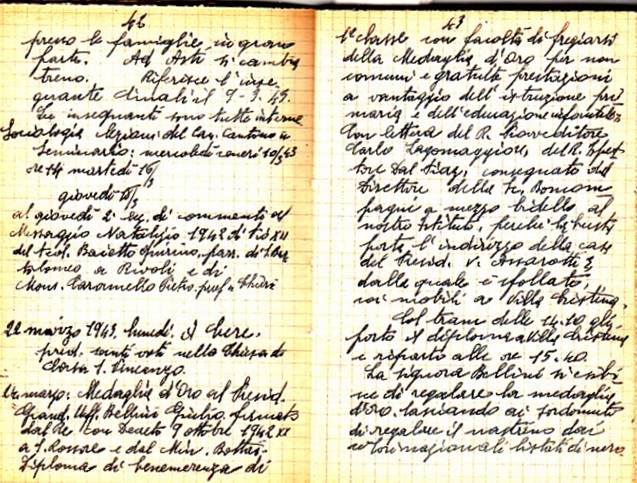 42
presso le famiglie, in gran
parte. Ad Asti si cambia
treno. Riferisce l'inse
gnante Cinati il 9-3-43.
Le insegnanti sono tutte interne
Sociologia Lezioni del Can. Cantono in
Seminario: mercoledì venerdì 10/3/43
ore 14 martedì 16/3
giovedì 18/3
al giovedì 2ª lez. di commento al
Messaggio Natalizio 1942 di Pio XII
del teol. Baietto Quirino, parr. di
a Rivoli e di
Mons. Caramello Pietro, prof. a Chieri
22 marzo 1943, lunedì, il
pred. nella Chiesa di
S. Vincenzo.
marzo: Medaglia d'Oro al Presid.
Grand. Uff. Bellini Giulio, firmata
dal Re con Decreto 9 ottobre 1942 XX
a S. Rossore e dal Min. Bottai.
Diploma di benemerenza di
43
1ª classe con facoltà di fregiarsi
della Medaglia d'Oro per non
comuni e gratuite prestazioni
a vantaggio dell'istruzione pri
maria e dell'educazione infantile
Con lettera del R. Provveditore
Carlo Lagomaggiore, del R. Ispet
tore Dal Piaz, consegnato dal
Direttore della
a mezzo bidello al
nostro Istituto, perché la busta
porta l'indirizzo della casa
del Presid. V. Assarotti 3,
dalla quale è sfollato,
coi mobili a Villa Cristina.
Col tram delle 14.10 gli
porto il diploma a Villa Cristina
e riparto alle ore 15.40.
La signora Bellini si esibi
sce di regalare la medaglia
d'oro, lasciando ai sordomuti
di regalare il nastrino dai
colori nazionali listati di nero